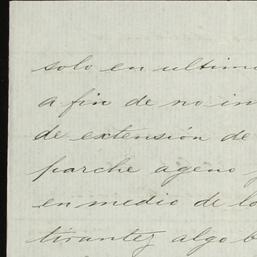 solo en ultim
a fin de no in
de extensión de
parche ageno
en medio de lo
tirantez algo b